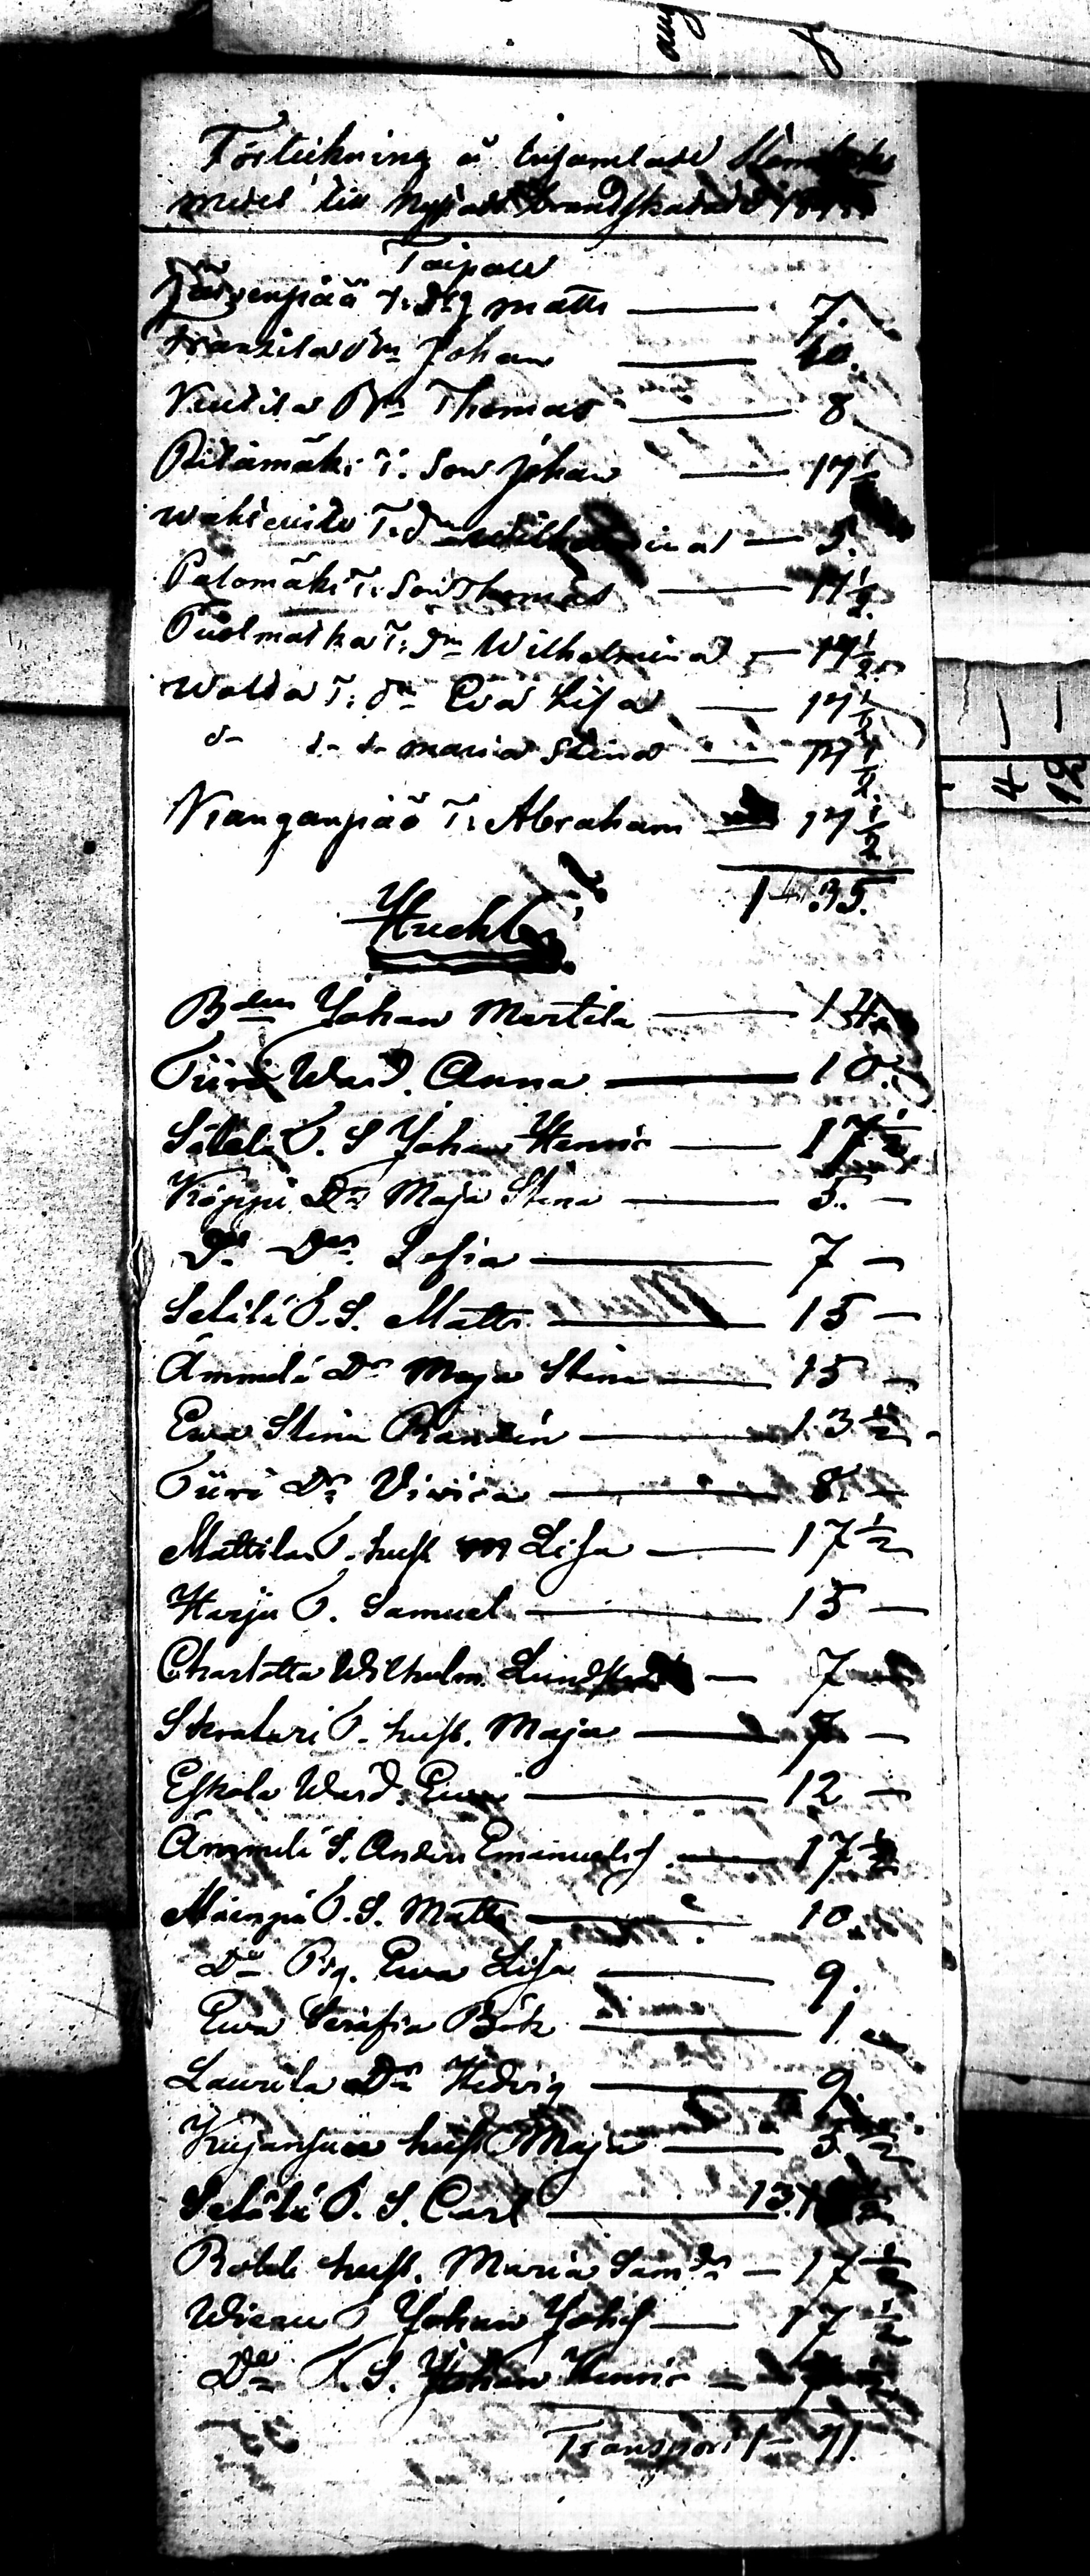 Förteckning å insamlade
medel till Nystads brandskadade
Taipale
Järvenpää T: drg Matts — 7.
Frantila Dr Johan — 10.
Knutila Dr Thomas — 8
Pitkämäki T. Son Johan — 17 1/2
T. dr Wilhelmina — 5.
Palomäki T: Son Thomas — 17 1/2
Puolmatka T: Dr Wilhelmina — 17 1/2
Wolba T: dr Eva Lisa — 17 1/2
d- d- d- Maria Stina — 17 1/2
Kanganpää T: Abraham — 17 1/2
1. 35.
Huchti
Bden Johan Mertila — 14
Türi Wärd. Anna — 10.
Säteli T. S Johan Henric — 17 1/2
Köppi Dr Maja Stina — 5. —
Do Dr Sofia — 7 —
Seläli T. S. Matts — 15 —
Ämmälä Dr Maja Stina — 15 —
Ewa Stina Randén — 13 1/2
Türi Dr Vivica — 8. —
Mattila T. hust Lisa — 17 1/2
Harju T. Samuel — 15 —
Charlotta Wilhelm. — 7
T. hust. Maja — 7 —
Eskola Wärd. Ewa — 12 —
Ämmälä S. Anders Emanuelsf — 17 1/2
Mäenpä T. S. Matts — 10.
Do Pig. Ewa Lisa — 9.
Ewa Serafia Böök — 1
Laurila Dr Hedvig — 9.
Kujansuu hust Maja — 5 1/2
Seläli T. S. Carl — 13.
hust. Maria Samdr — 17 1/2
Wienu T Johan Johsf — 17 1/2
Do T. S. Johan Henric —
Transport 1- 71.